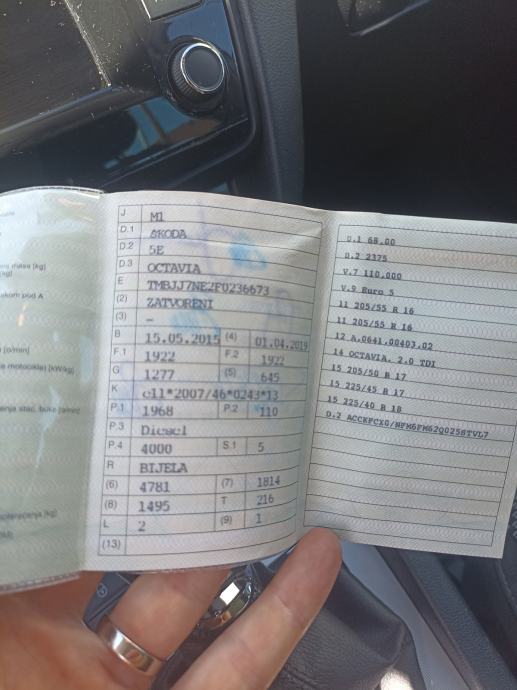 masa [kg]
[kg]
kom pod A
[o/min]
motocikle) [kW/kg]
enja stac. buke [o/min]
J M1
D.1 ŠKODA
D.2 5E
D.3 OCTAVIA
E TMBJJ7NE2F0236673
(2) ZATVORENI
(3) -
B 15.05.2015 (4) 01.04.2019
F.1 1922 F.2 1922
G 1277 (5) 645
K e11*2007/46*0243*13
P.1 1968 P.2 110
P.3 Diesel
P.4 4000 S.1 5
R BIJELA
(6) 4781 (7) 1814
(8) 1495 T 216
L 2 (9) 1
(13)
U.1 68,00
U.2 2375
V.7 110,000
V.9 Euro 5
11 205/55 R 16
11 205/55 R 16
12 A.0641.00403.02
14 OCTAVIA, 2.0 TDI
15 205/50 R 17
15 225/45 R 17
15 225/40 R 18
D.2 ACCKFCX0/NFM6FM62Q025STVL7